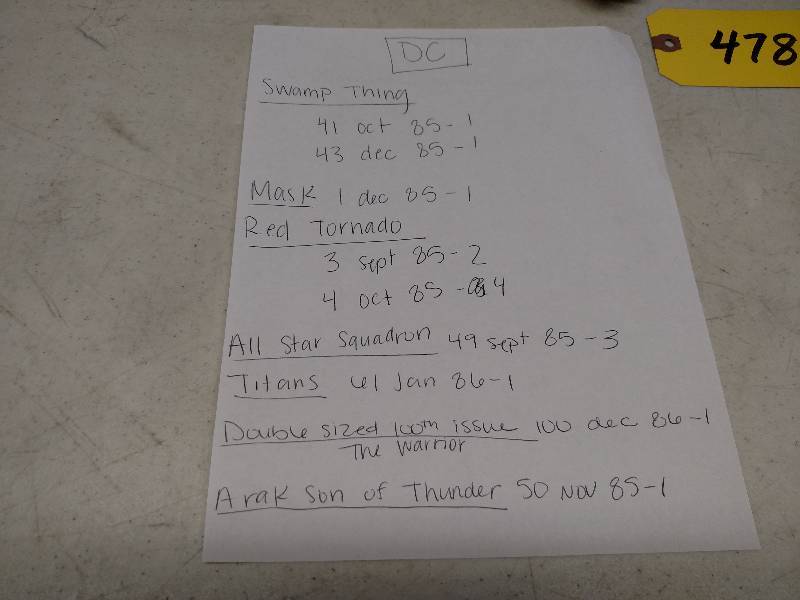 478
DC
Swamp Thing
41 oct 85-1
43 dec 85-1
Mask 1 dec 85-1
Red Tornado
3 sept 85-2
4 oct 85- 4
All Star Squadron 49 sept 85-3
Titans 61 Jan 86-1
Double sized 100th issue 100 dec 86-1
The Warrior
Arak Son of Thunder 50 Nov 85-1